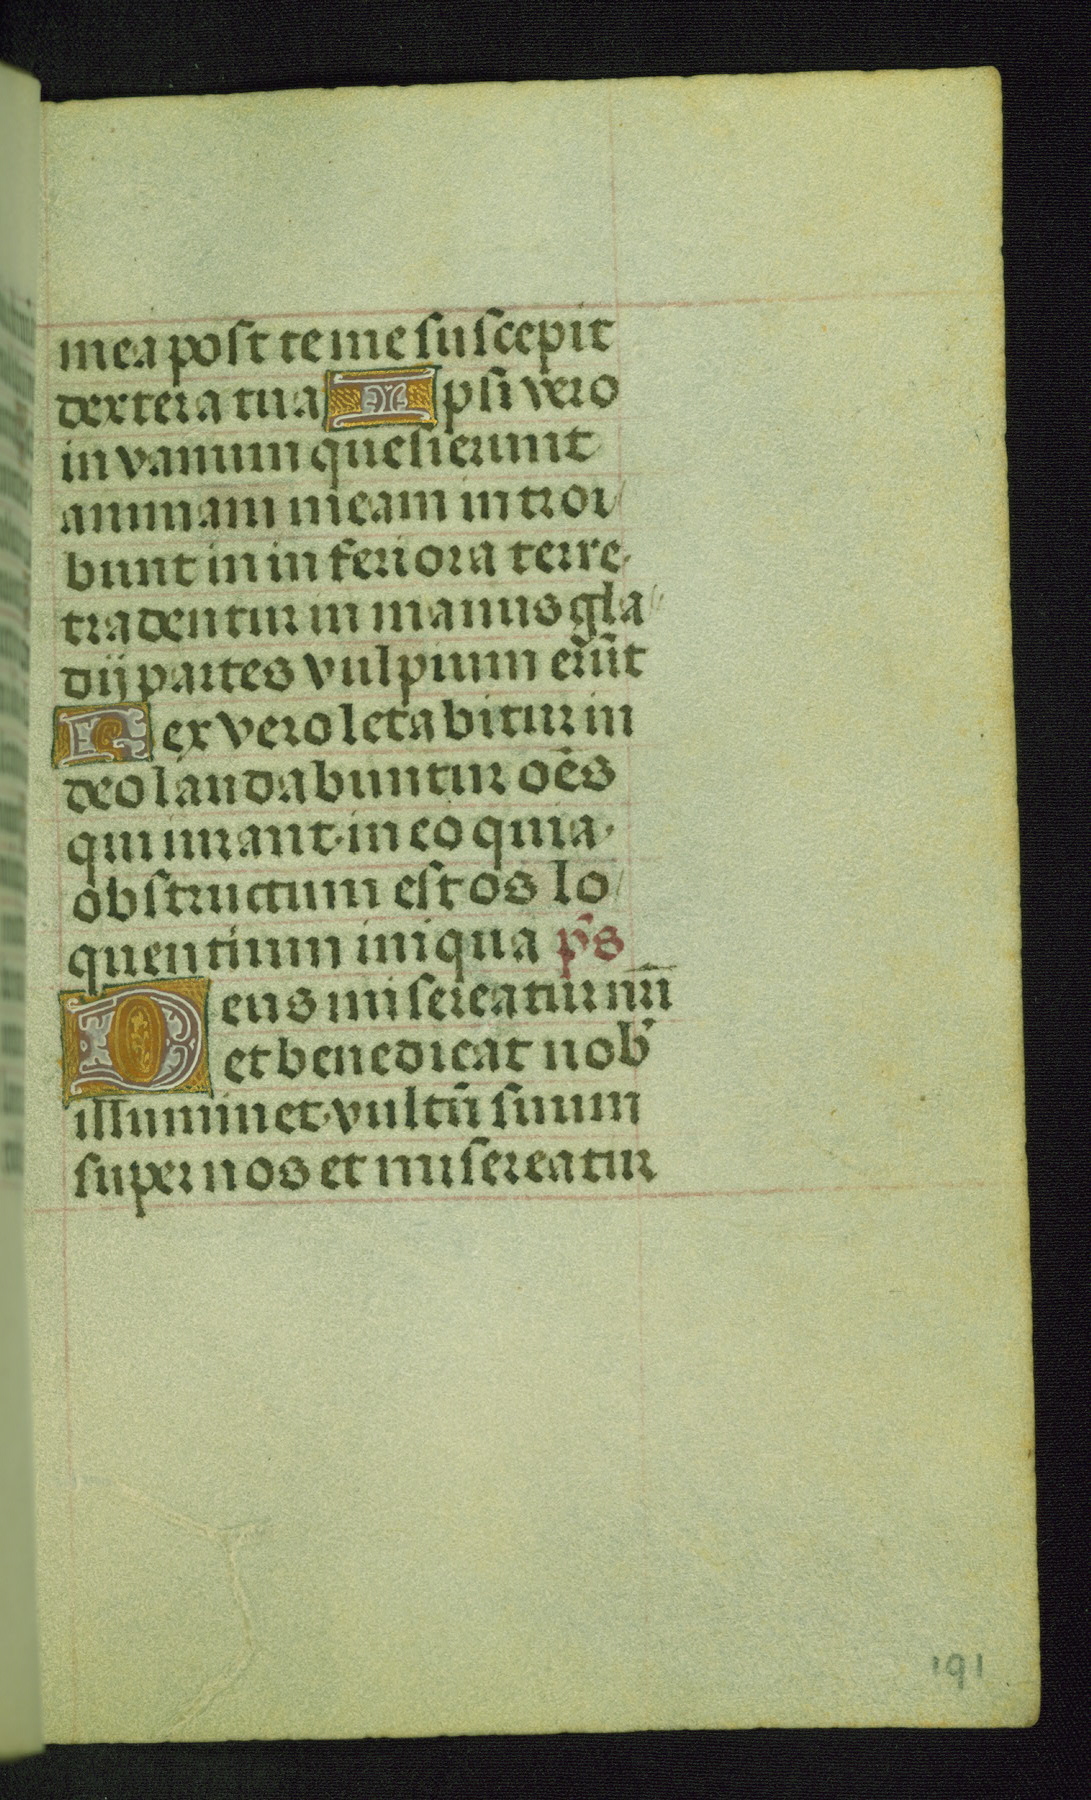 mea post te me suscepit
dextera tua Ipsi vero
in vanum quesierunt
animam meam introi
bunt in inferiora terre
tradentur in manus gla
dij partes vulpium erūt
Rex vero letabitur in
deo laudabuntur oēs
qui iurant in eo quia
obstructum est os lo
quentium iniqua p̄s
Deus misereatur nr̄i
et benedicat nob̄
illuminet vultū suum
super nos et misereatur
191